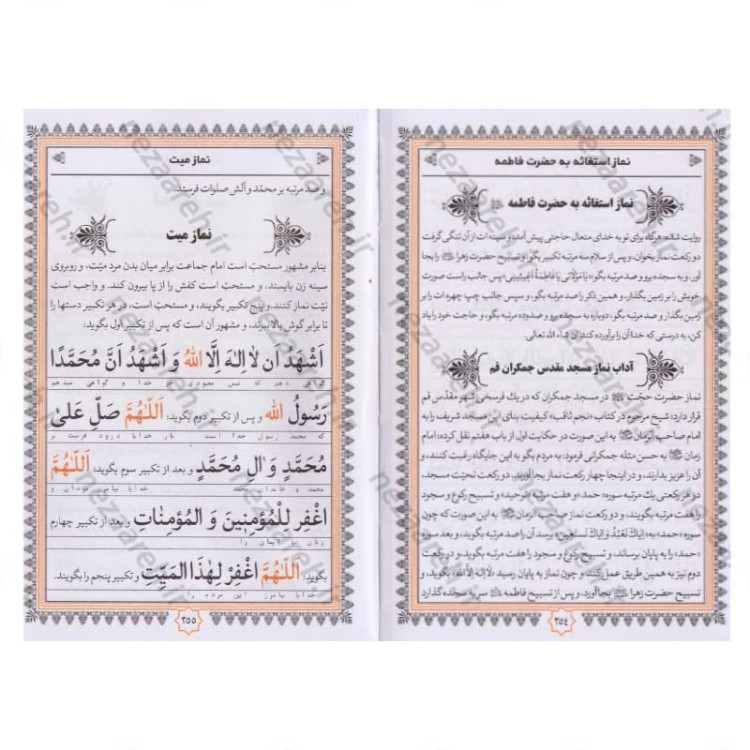 نماز استغاثه به حضرت فاطمه
نماز استغاثه به حضرت فاطمه
روایت شده، هرگاه برای تو به خدای متعال حاجتی پیش آمد، و سینه ات از آن تنگی گرفت
دو رکعت نماز بخوان، و پس از سلام سه مرتبه تکبیر بگو، و تسبیح حضرت زهرا را بجا
آور، و به سجده برو و صد مرتبه بگو: یا مَوْلاتي یا فاطِمَةُ اَغیثیني؛ پس جانب راست صورت
خویش را بر زمین بگذار، و همین ذکر را صد مرتبه بگو، و سپس جانب چپ چهره ات را بر
زمین بگذار و صد مرتبه بگو، دوباره به سجده برو و صدوده مرتبه بگو، و حاجت خود را یاد
کن، به درستی که خدا آن را برآورده کند، ان شاء الله تعالی.
آداب نماز مسجد مقدس جمکران قم
نماز حضرت حجّت در مسجد جمکران که در یک فرسخی شهر مقدّس قم
قرار دارد: شیخ مرحوم در کتاب «نجم ثاقب» کیفیت بنای این مسجد شریف را به
امام صاحب الزمان به این صورت در حکایت اول از باب هفتم نقل کرده: امام
زمان به حسن مثله جمکرانی فرمود: به مردم بگو به این جایگاه رغبت کنند، و
آن را عزیز بدارند، و در اینجا چهار رکعت نماز بجا آورند. دو رکعت تحیّت مسجد،
در هر رکعتی یک مرتبه سوره «حمد» و هفت مرتبه «توحید» و تسبیح رکوع و سجود
را هفت مرتبه بگویند، و دو رکعت نماز صاحب الزمان به این صورت که چون
سوره «حمد» به اِیّاکَ نَعْبُدُ وَ اِیّاکَ نَسْتَعین رسد آن را صد مرتبه بگوید، و بعد از آن سوره
«حمد» را به پایان برساند، و تسبیح رکوع و سجود را هفت مرتبه بگوید، و در رکعت
دوم نیز به همین طریق عمل کند، و چون نماز به پایان رسید «لا اله الا الله» بگوید، و
تسبیح حضرت زهرا بجا آورد، و پس از تسبیح فاطمه سر به سجده گذارد
۲۵۴
نماز میت
و صد مرتبه بر محمّد و آلش صلوات فرستد.
نماز میت
بنابر مشهور مستحبّ است امام جماعت برابر میان بدن مرد میّت، و روبروی
سینه زن بایستد. و مستحبّ است کفش را از پا بیرون کند. و واجب است
نیّت نماز کنند، و پنج تکبیر بگویند، و مستحبّ است، در هر تکبیر دستها را
تا برابر گوش بالا ببرند. و مشهور آن است که پس از تکبیر اول بگوید:
اَشْهَدُ اَن لا اِلهَ اِلَّا اللهُ وَ اَشْهَدُ اَنَّ مُحَمَّدًا
رَسُولُ الله و پس از تکبیر دوم بگوید: اَللّهُمَّ صَلِّ عَلیٰ
که محمد رسول خدا است بار خدایا درود فرست بر
مُحَمَّدٍ وَالِ مُحَمَّدٍ و بعد از تکبیر سوم بگوید: اَللّهُمَّ
اغْفِرْ لِلْمُؤْمِنینَ وَ الْمُؤْمِناتِ و بعد از تکبیر چهارم
بگوید: اَللّهُمَّ اغْفِرْ لِهٰذَا المَیِّتِ و تکبیر پنجم را بگویند.
خدایا بیامرز این مرده را
۲۵۵
nezaareh.ir